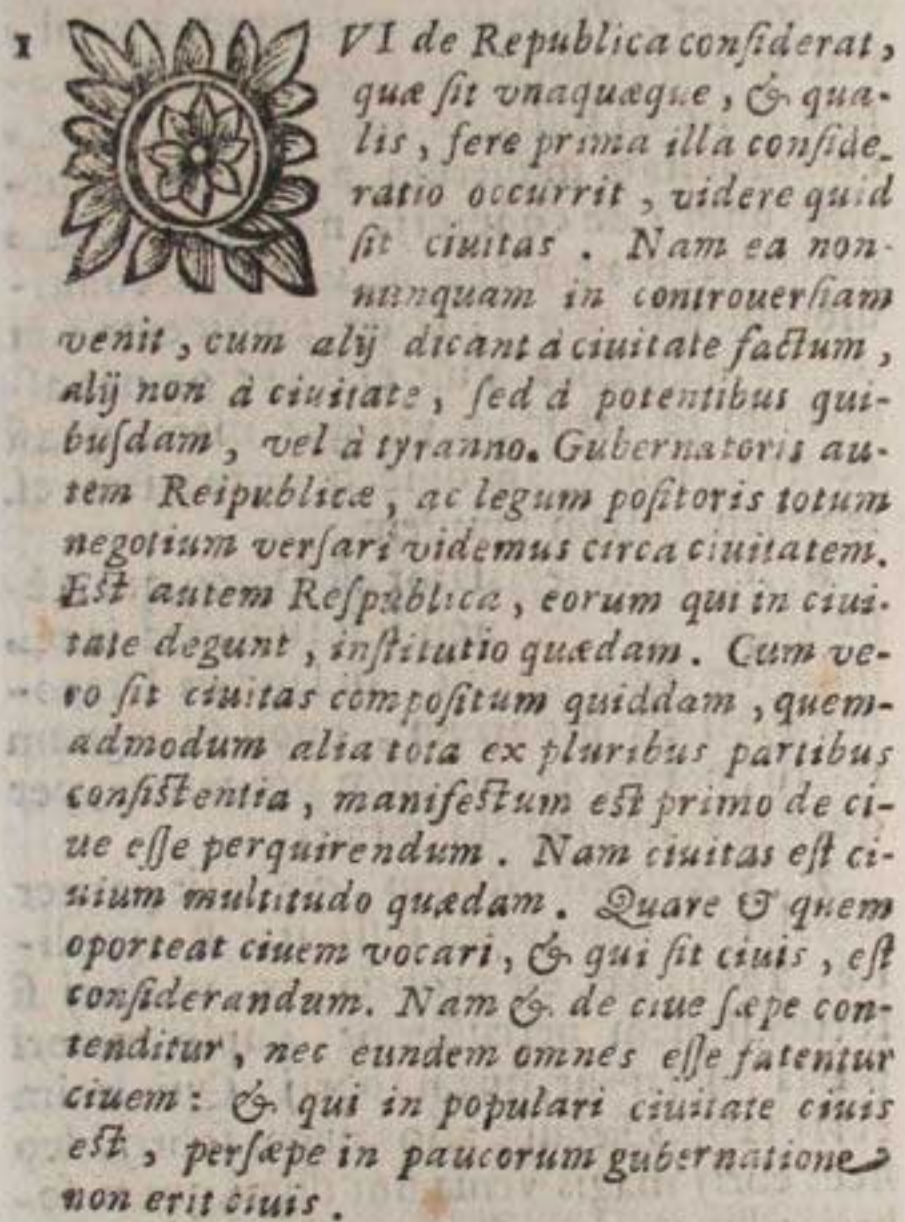 1 QVI de Republica conſiderat,
quæ ſit vnaquæque, & qua-
lis, fere prima illa conſide-
ratio occurrit, videre quid
ſit ciuitas. Nam ea non-
nunquam in controuerſiam
venit, cum alij dicant à ciuitate factum,
alij non à ciuitate, ſed à potentibus qui-
buſdam, vel à tyranno. Gubernatoris au-
tem Reipublicæ, ac legum poſitoris totum
negotium verſari videmus circa ciuitatem.
Eſt autem Reſpublica, eorum qui in ciui-
tate degunt, inſtitutio quædam. Cum ve-
ro ſit ciuitas compoſitum quiddam, quem-
admodum alia tota ex pluribus partibus
conſiſtentia, manifeſtum eſt primo de ci-
ue eſſe perquirendum. Nam ciuitas eſt ci-
uium multitudo quædam. Quare & quem
oporteat ciuem vocari, & qui ſit ciuis, eſt
conſiderandum. Nam & de ciue ſæpe con-
tenditur, nec eundem omnes eſſe fatentur
ciuem: & qui in populari ciuitate ciuis
eſt, perſæpe in paucorum gubernatione
non erit ciuis.